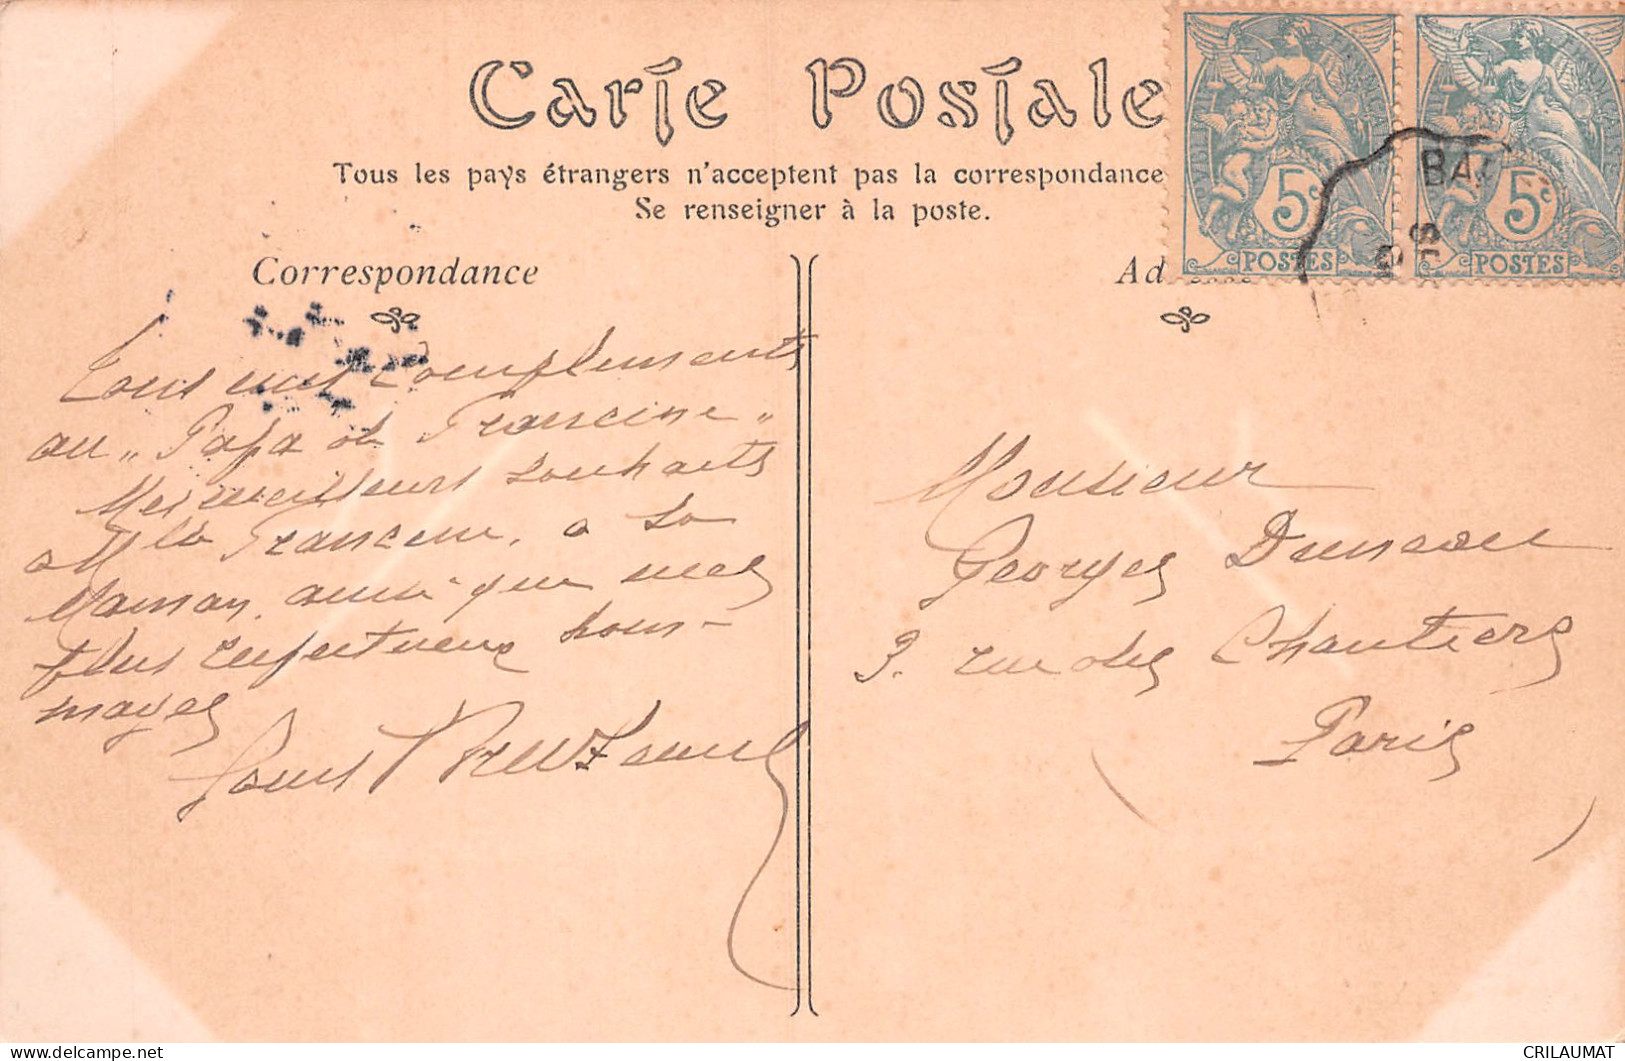 Carte Postale
Tous les pays étrangers n'acceptent pas la correspondance
Se renseigner à la poste.
Correspondance
Tous mes compliments
au „ Papa de Francine „
Mes meilleurs souhaits
a Mlle Francine, a sa
Maman, ainsi que mes
plus respectueux hom-
mages
Louis
Monsieur
Georges Duncan
3. rue des Chantiers
Paris
5c
POSTES
5c
POSTES
BA
CRILAUMAT